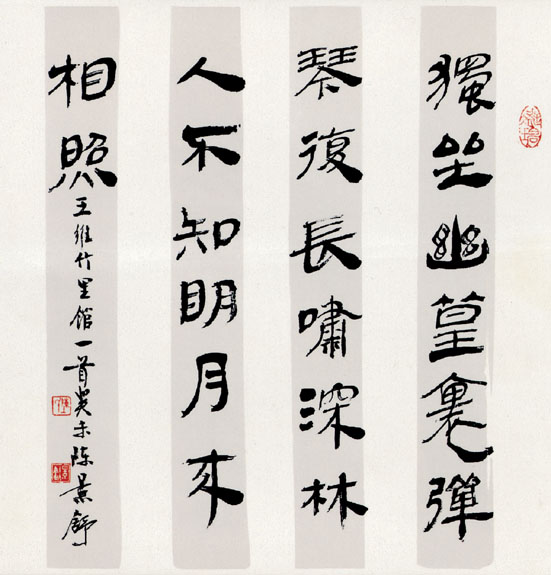 獨坐幽篁裏彈
琴復長嘯深林
人不知明月来
相照
王維竹里館一首癸未陈景舒